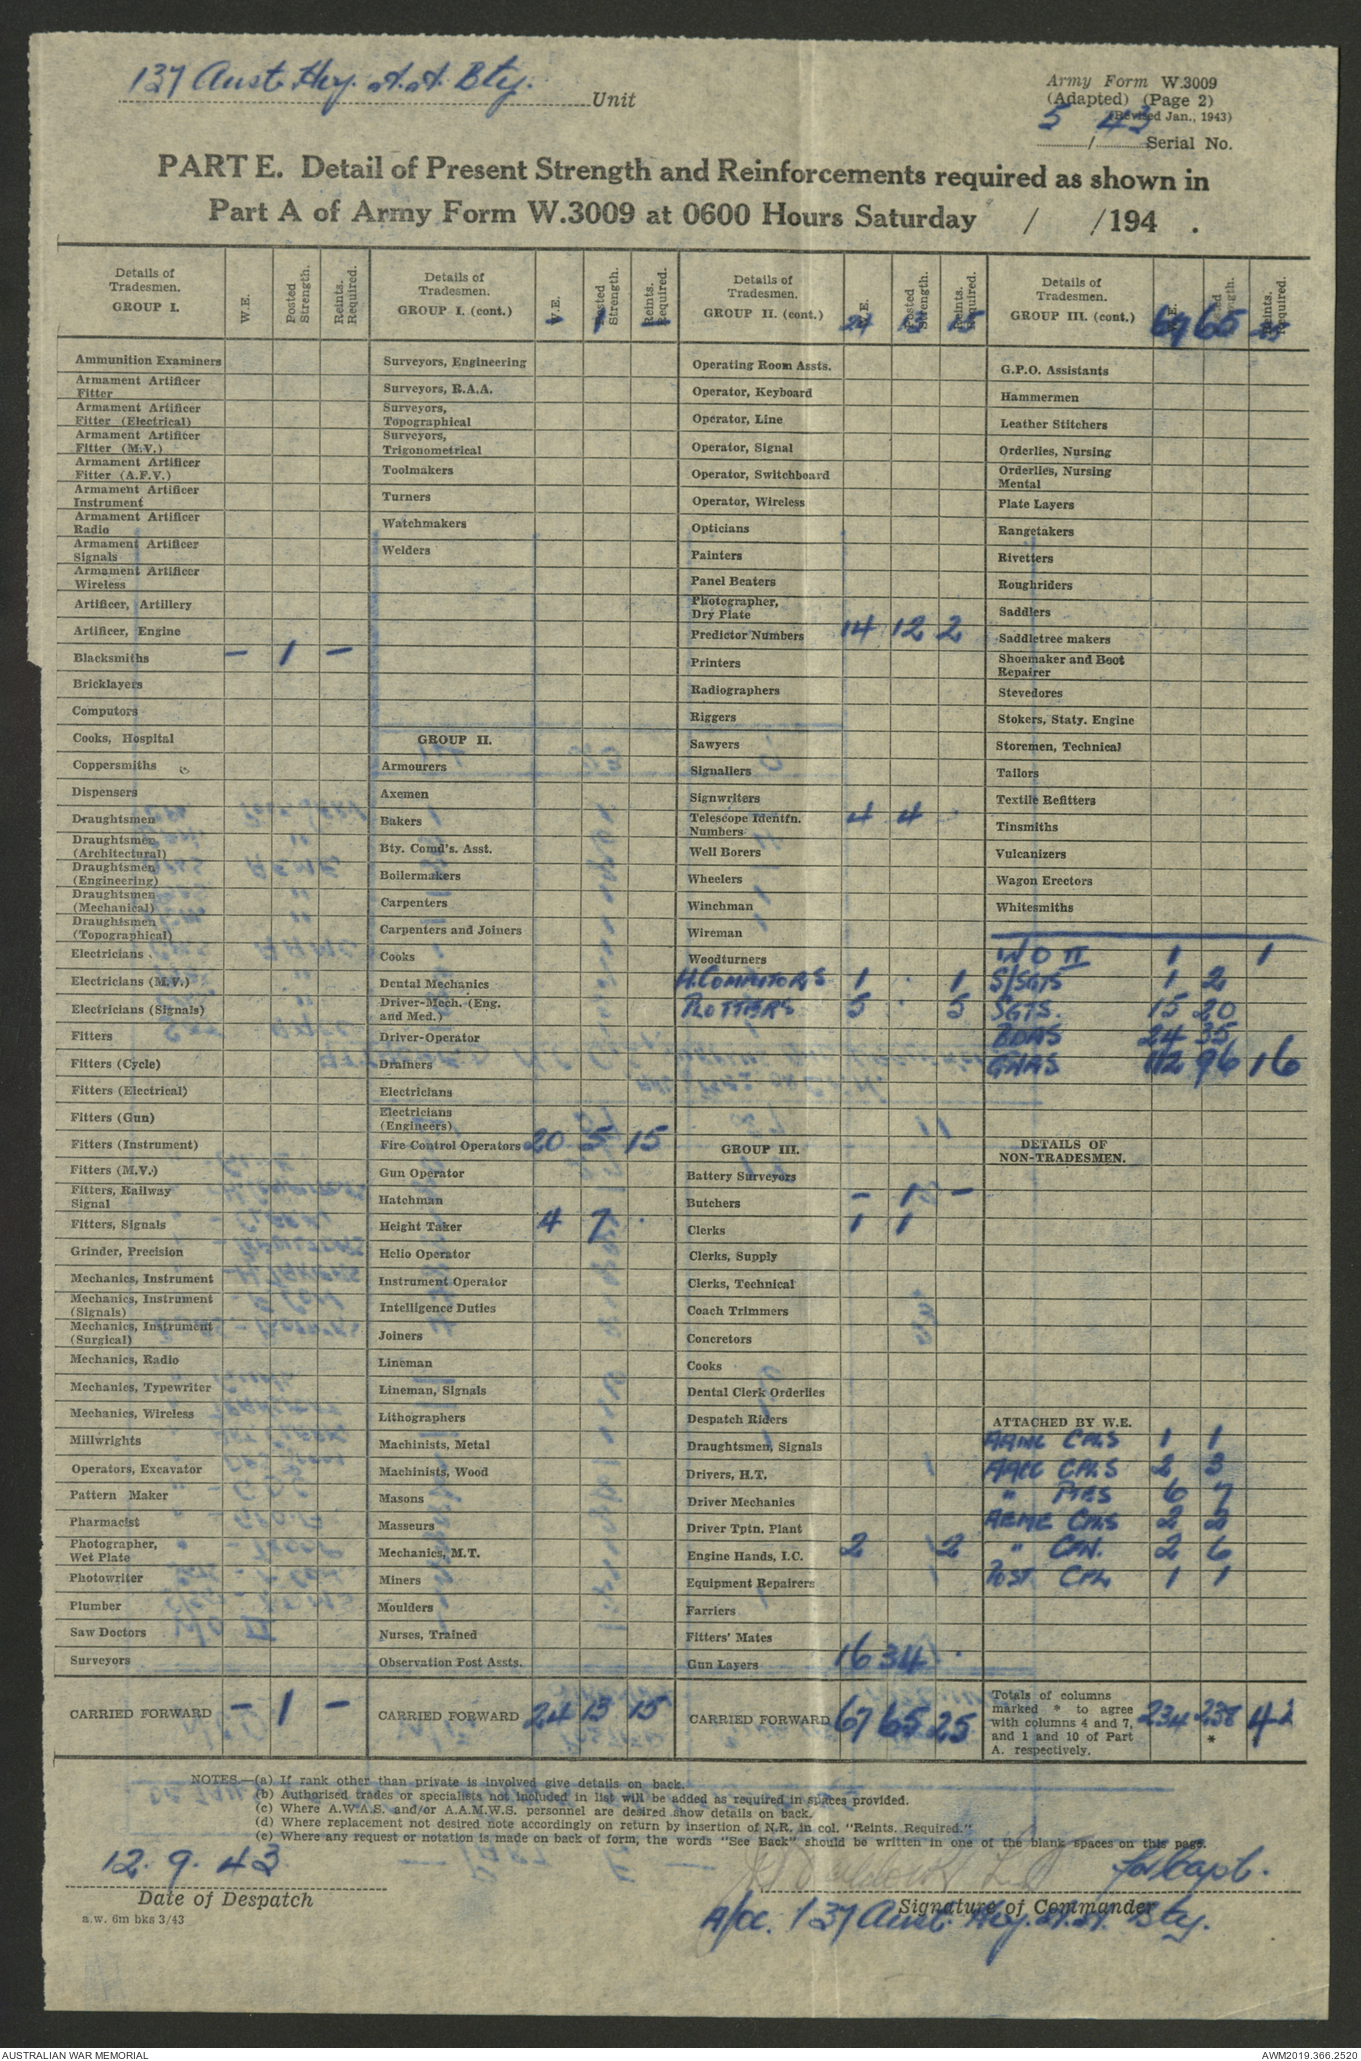 137 Aust. Hvy. A.A. Bty. Unit
Army Form W.3009
(Adapted) (Page 2)
(Revised Jan., 1943)
5 / 43 Serial No.
PART E. Detail of Present Strength and Reinforcements required as shown in
Part A of Army Form W.3009 at 0600 Hours Saturday / /194 .
Details of Tradesmen. GROUP I.
W.E.
Posted Strength.
Reints. Required.
Ammunition Examiners
Armament Artificer Fitter
Armament Artificer Fitter (Electrical)
Armament Artificer Fitter (M.V.)
Armament Artificer Fitter (A.F.V.)
Armament Artificer Instrument
Armament Artificer Radio
Armament Artificer Signals
Armament Artificer Wireless
Artificer, Artillery
Artificer, Engine
Blacksmiths – 1 –
Bricklayers
Computors
Cooks, Hospital
Coppersmiths
Dispensers
Draughtsmen
Draughtsmen (Architectural)
Draughtsmen (Engineering)
Draughtsmen (Mechanical)
Draughtsmen (Topographical)
Electricians
Electricians (M.V.)
Electricians (Signals)
Fitters
Fitters (Cycle)
Fitters (Electrical)
Fitters (Gun)
Fitters (Instrument)
Fitters (M.V.)
Fitters, Railway Signal
Fitters, Signals
Grinder, Precision
Mechanics, Instrument
Mechanics, Instrument (Signals)
Mechanics, Instrument (Surgical)
Mechanics, Radio
Mechanics, Typewriter
Mechanics, Wireless
Millwrights
Operators, Excavator
Pattern Maker
Pharmacist
Photographer, Wet Plate
Photowriter
Plumber
Saw Doctors
Surveyors
CARRIED FORWARD – 1 –
Details of Tradesmen. GROUP I. (cont.)
W.E. –
Posted Strength. 1
Reints. Required.
Surveyors, Engineering
Surveyors, R.A.A.
Surveyors, Topographical
Surveyors, Trigonometrical
Toolmakers
Turners
Watchmakers
Welders
GROUP II.
Armourers
Axemen
Bakers
Bty. Comd's. Asst.
Boilermakers
Carpenters
Carpenters and Joiners
Cooks
Dental Mechanics
Driver-Mech. (Eng. and Med.)
Driver-Operator
Drainers
Electricians
Electricians (Engineers)
Fire Control Operators 20 5 15
Gun Operator
Hatchman
Height Taker 4 7
Helio Operator
Instrument Operator
Intelligence Duties
Joiners
Lineman
Lineman, Signals
Lithographers
Machinists, Metal
Machinists, Wood
Masons
Masseurs
Mechanics, M.T.
Miners
Moulders
Nurses, Trained
Observation Post Assts.
CARRIED FORWARD 24 13 15
Details of Tradesmen. GROUP II. (cont.)
W.E. 24
Posted Strength. 13
Reints. Required. 15
Operating Room Assts.
Operator, Keyboard
Operator, Line
Operator, Signal
Operator, Switchboard
Operator, Wireless
Opticians
Painters
Panel Beaters
Photographer, Dry Plate
Predictor Numbers 14 12 2
Printers
Radiographers
Riggers
Sawyers
Signallers
Signwriters
Telescope Identfn. Numbers 4 4
Well Borers
Wheelers
Winchman
Wireman
Woodturners
H. COMPUTORS 1 1
PLOTTERS 5 5
GROUP III.
Battery Surveyors
Butchers – 1 –
Clerks 1 1
Clerks, Supply
Clerks, Technical
Coach Trimmers
Concretors
Cooks
Dental Clerk Orderlies
Despatch Riders
Draughtsmen, Signals
Drivers, H.T.
Driver Mechanics
Driver Tptn. Plant
Engine Hands, I.C. 2 2
Equipment Repairers
Farriers
Fitters' Mates
Gun Layers 16 34
CARRIED FORWARD 67 65 25
Details of Tradesmen. GROUP III. (cont.)
W.E. 67
Posted Strength. 65
Reints. Required. 25
G.P.O. Assistants
Hammermen
Leather Stitchers
Orderlies, Nursing
Orderlies, Nursing Mental
Plate Layers
Rangetakers
Rivetters
Roughriders
Saddlers
Saddletree makers
Shoemaker and Boot Repairer
Stevedores
Stokers, Staty. Engine
Storemen, Technical
Tailors
Textile Refitters
Tinsmiths
Vulcanizers
Wagon Erectors
Whitesmiths
W O II 1 1
S/SGTS 1 2
SGTS. 15 20
BDRS 24 35
GNRS 112 96 16
DETAILS OF NON-TRADESMEN.
ATTACHED BY W.E.
AAMC CPLS 1 1
AACC CPLS 2 3
" PTES 6 7
AEME CPLS 2 2
" CFN. 2 6
POST CPL 1 1
Totals of columns marked * to agree with columns 4 and 7, and 1 and 10 of Part A. respectively. 234 238 * 42
NOTES.—(a) If rank other than private is involved give details on back.
(b) Authorised trades or specialists not included in list will be added as required in spaces provided.
(c) Where A.W.A.S. and/or A.A.M.W.S. personnel are desired show details on back.
(d) Where replacement not desired note accordingly on return by insertion of N.R. in col. "Reints. Required."
(e) Where any request or notation is made on back of form, the words "See Back" should be written in one of the blank spaces on this page.
12. 9. 43
Date of Despatch
a.w. 6m bks 3/43
for Capt.
Signature of Commander
A/OC. 137 Aust. Hvy. A.A. Bty.
AUSTRALIAN WAR MEMORIAL
AWM2019.366.2520